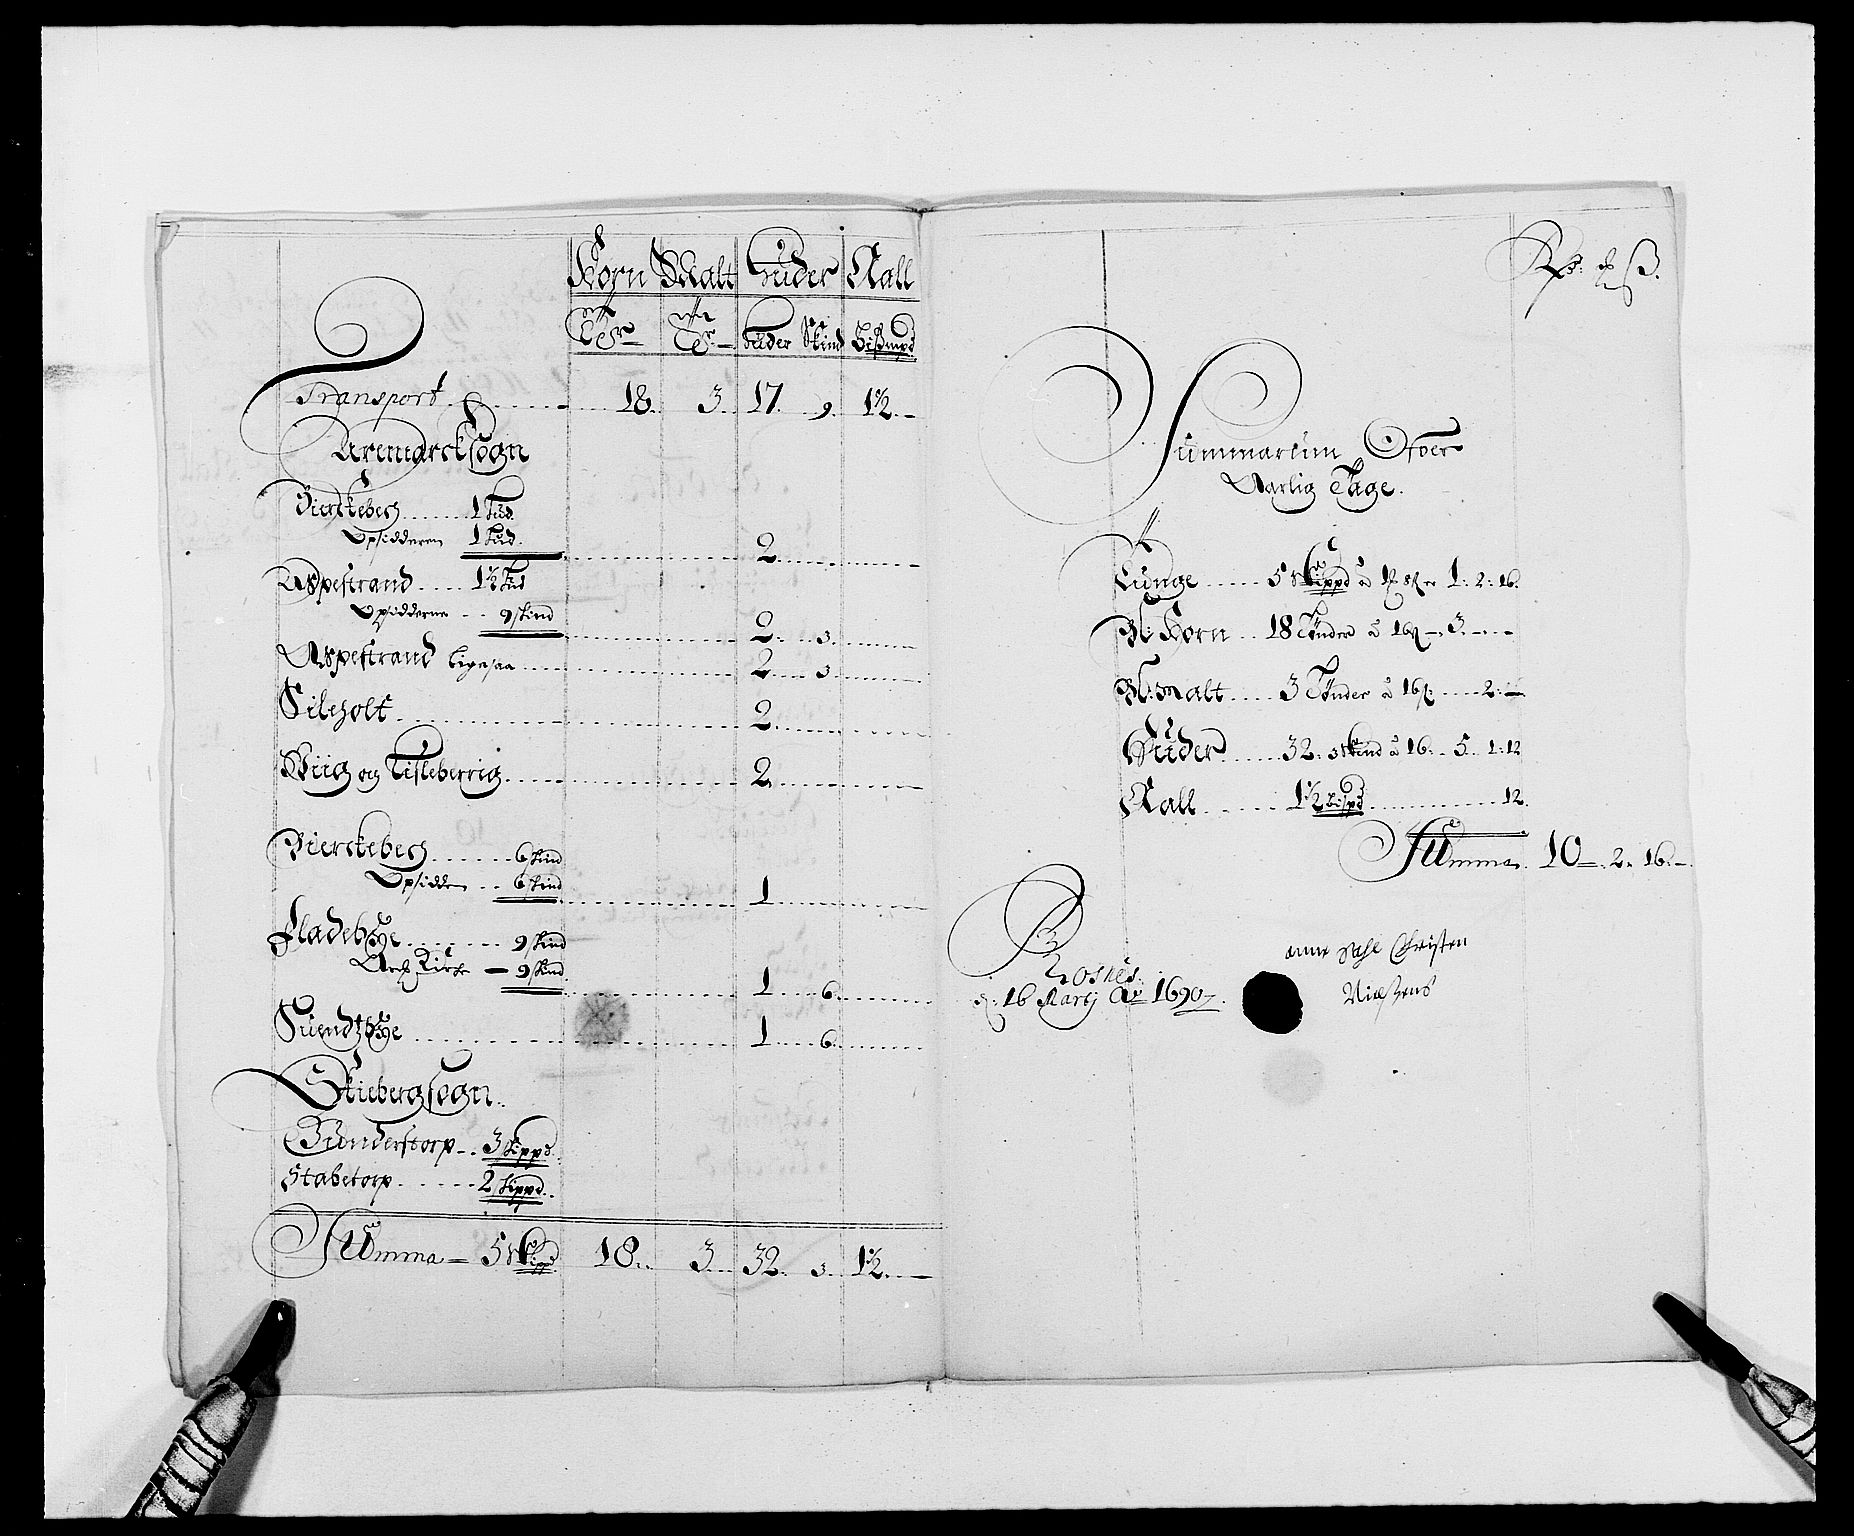 Korn Malt Huder Kall
Tdr Tdr Huder Skind Bißmpd
Transport 18. 3. 17. 9. 1½.
Aremarck Sogn
Bierckebech 1 Hud
Opsidderen 1 Hud. 2
Aspestrand 1½ Hud
Opsidderne 9 skind 2. 3.
Aspestrand ligesaa 2 3.
Sileholt 2
Wiig og Tisleberrig 2
Bierckebech 6 skind
Opsidden 6 skind 1
Fladebye 9 skind
Arch Kirche 9 skind 1 6.
Suendtbye 1 6.
Skieberg Sogn.
Gunderstorp 3 skippd
Stabetorp 2 skippd.
Summa 5 skippd 18. 3. 32. 3. 1½.
Rdr. ß.
Summarium Ofver
Aarlig Tage.
Tunge 5 skippd a 1 1: 2: 16.
Bl: Korn 18 Tønder a 16 3.
Bl: malt 3 Tønder a 16 2.
Huder 32. 3 skind a 16. 5. 1: 12
Kall 1½ Bispd 12.
Summa. 10. 2. 16.
Rosnes
d: 16 Martj Ao 1690.
anne Sahl Christen
Nielsens